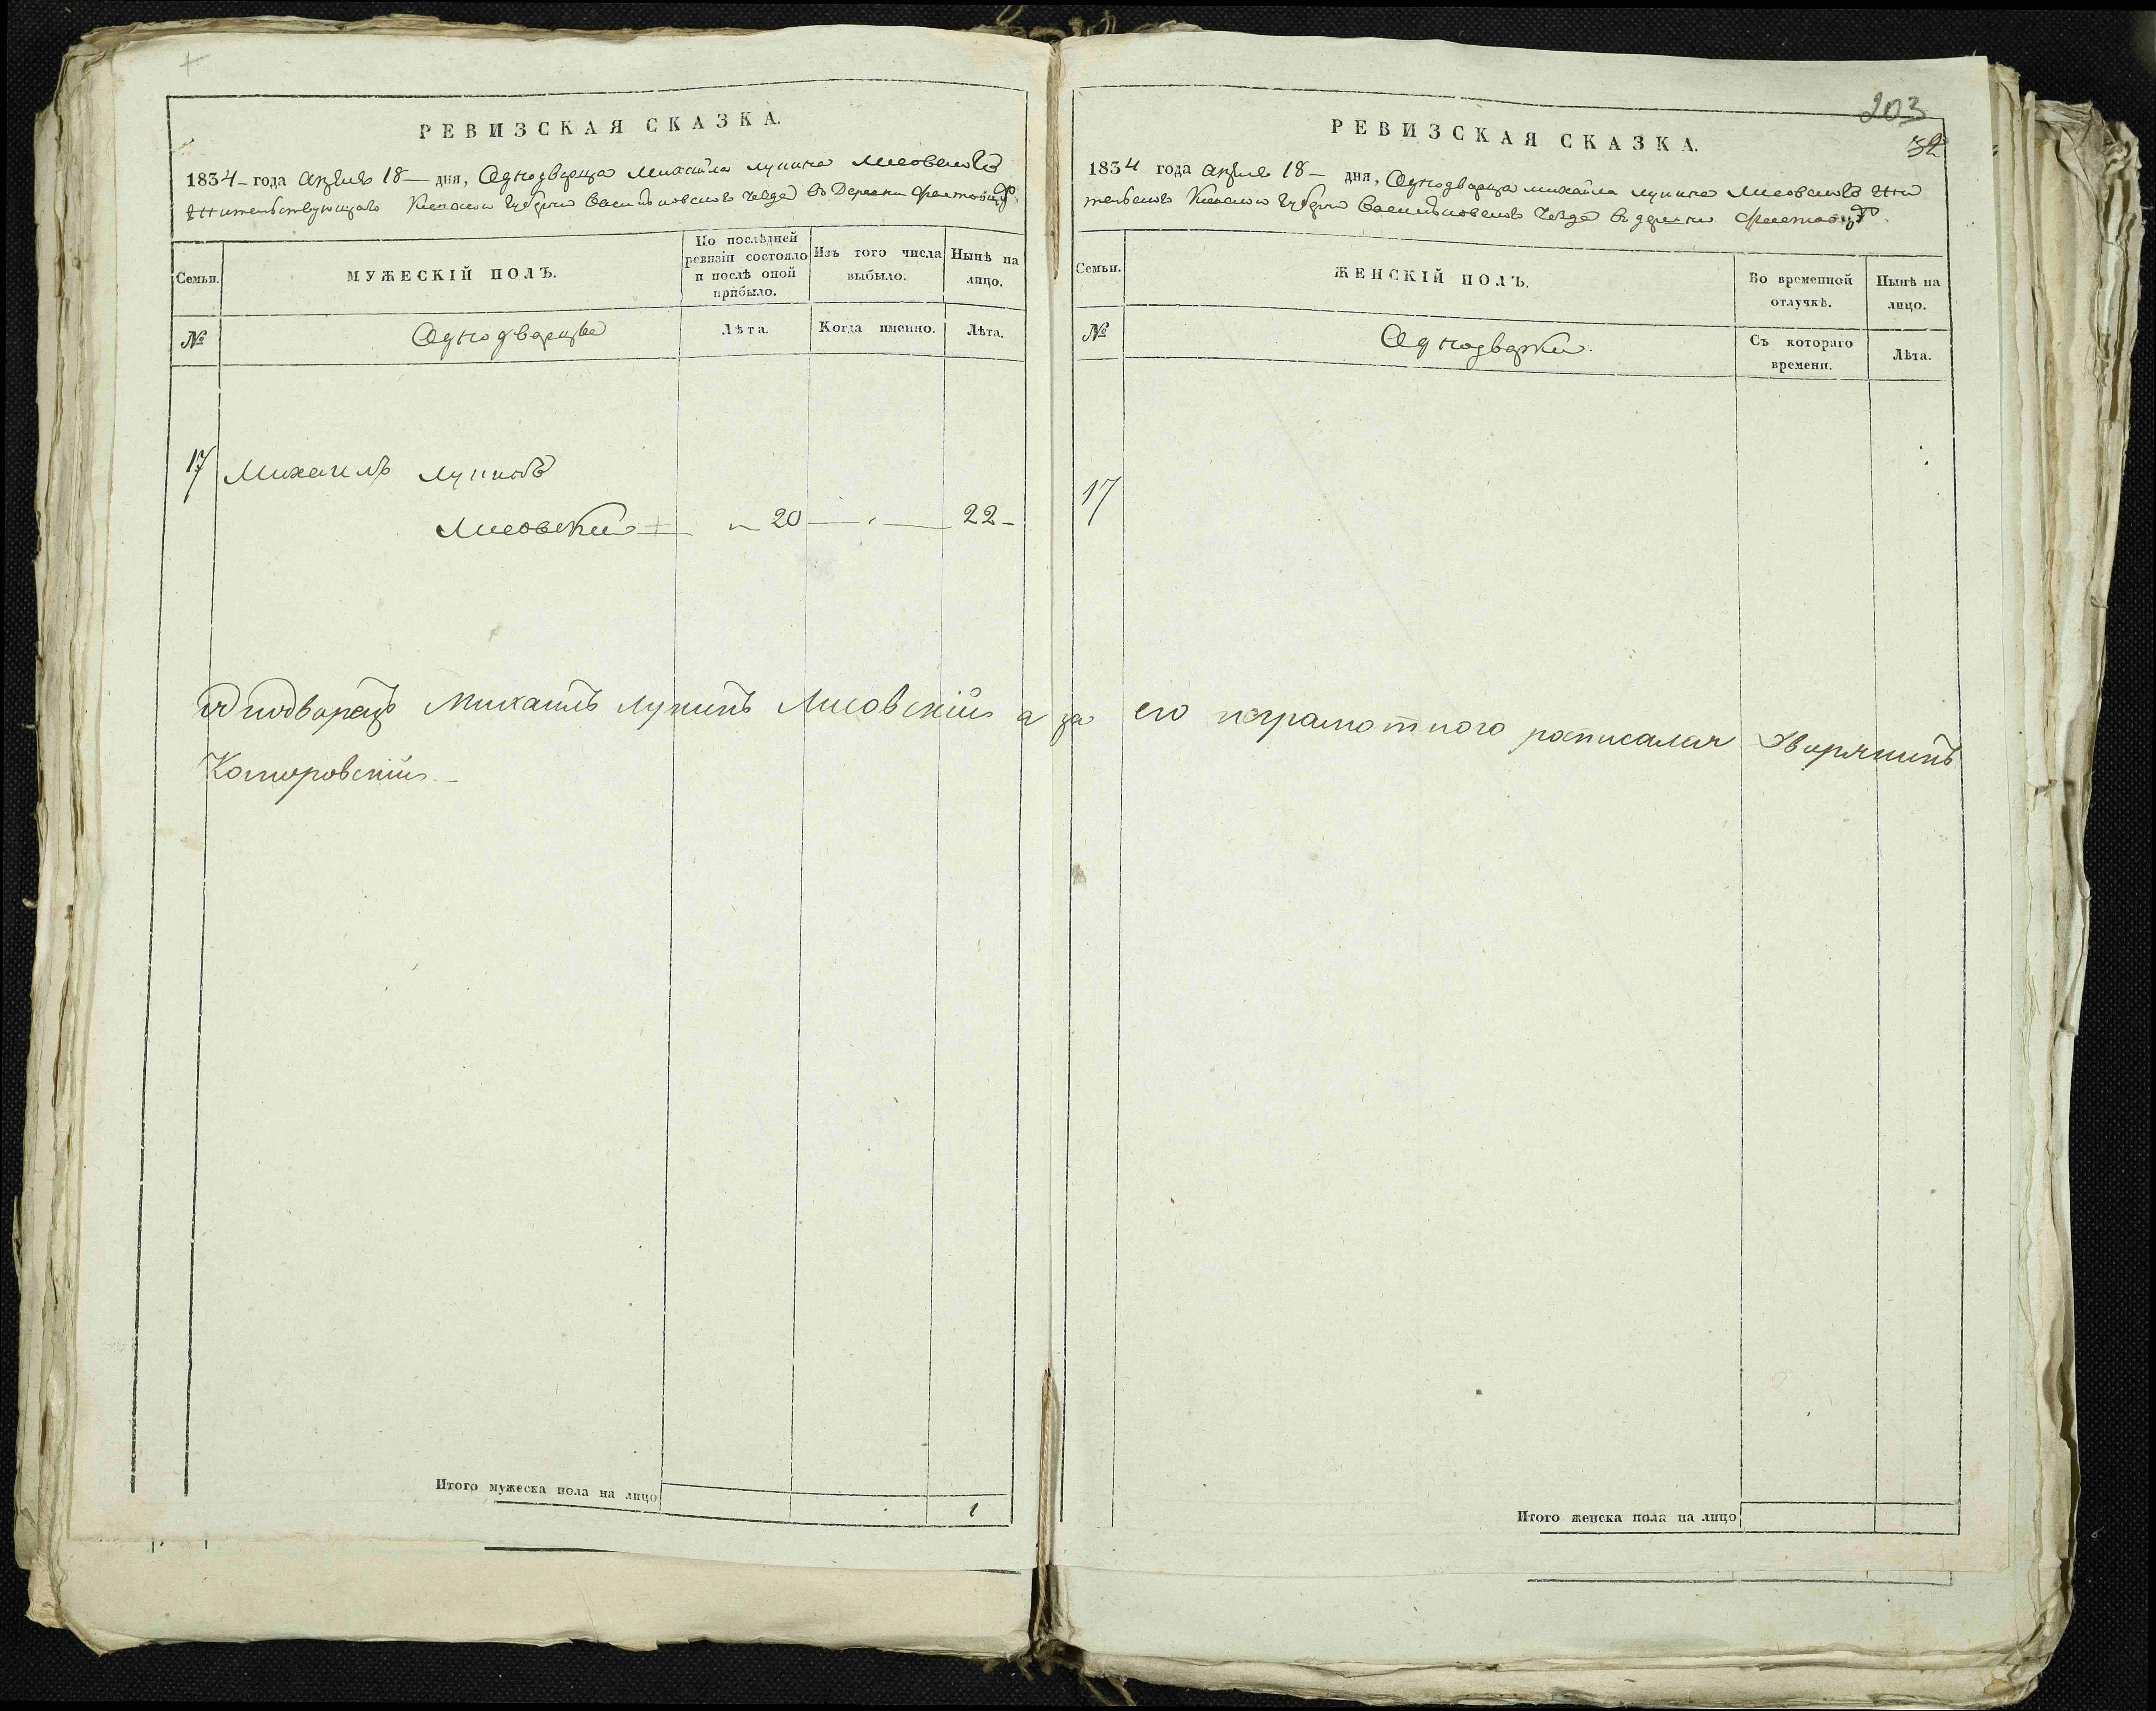 РЕВИЗСКАЯ СКАЗКА.
1834 года Апреля 18 дня, Однодворца Михайла Лупина Лисовского
жительствующаго Киевской Губернии Васильковского уезда в Деревни
Семьи.
МУЖЕСКІЙ ПОЛЪ.
По послѣдней ревизіи состояло и послѣ оной прибыло.
Изъ того числа выбыло.
Нынѣ на лицо.
№
Однодворцы
Лѣта.
Когда именно.
Лѣта.
17 Михаилъ Лупинъ
Лисовский 20 22
Однодворецъ Михаилъ Лупинъ Лисовскій а за его неграмотного росписался Дворянинъ
Комаровскій
Итого мужеска пола на лицо 1
203
32
РЕВИЗСКАЯ СКАЗКА.
1834 года Апреля 18 дня, Однодворца Михайла Лупина Лисовского жи
Киевской Губернии Васильковского уезда в деревни
Семьи.
ЖЕНСКІЙ ПОЛЪ.
Во временной отлучкѣ.
Нынѣ на лицо.
№
Однодворки.
Съ котораго времени.
Лѣта.
17
Итого женска пола на лицо